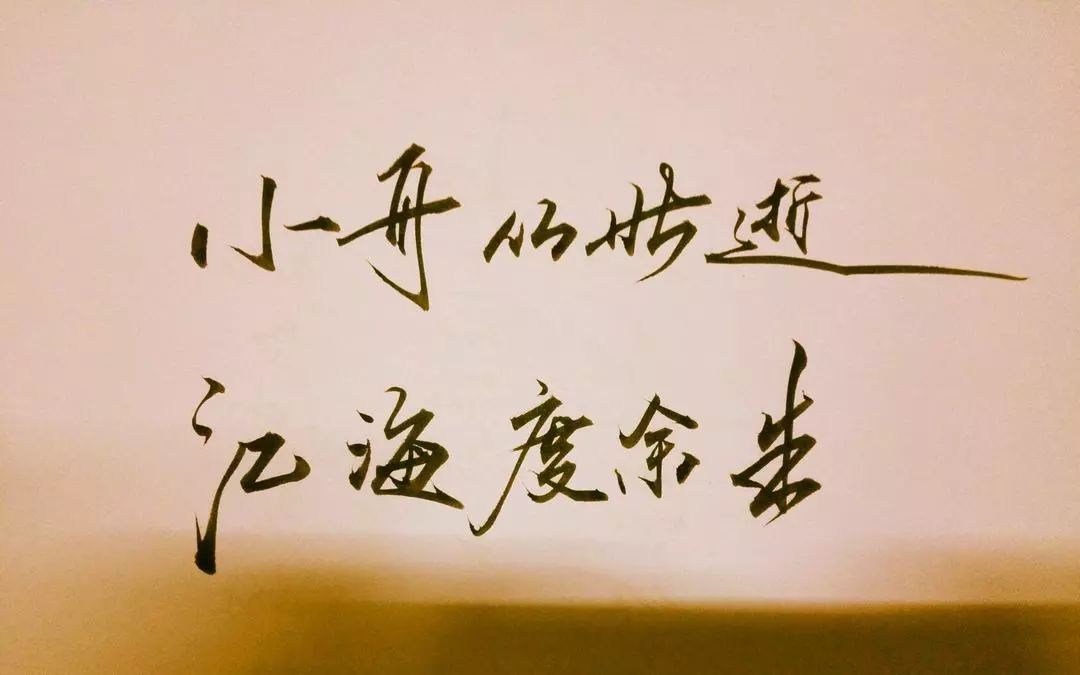 小舟从此逝
江海度余生